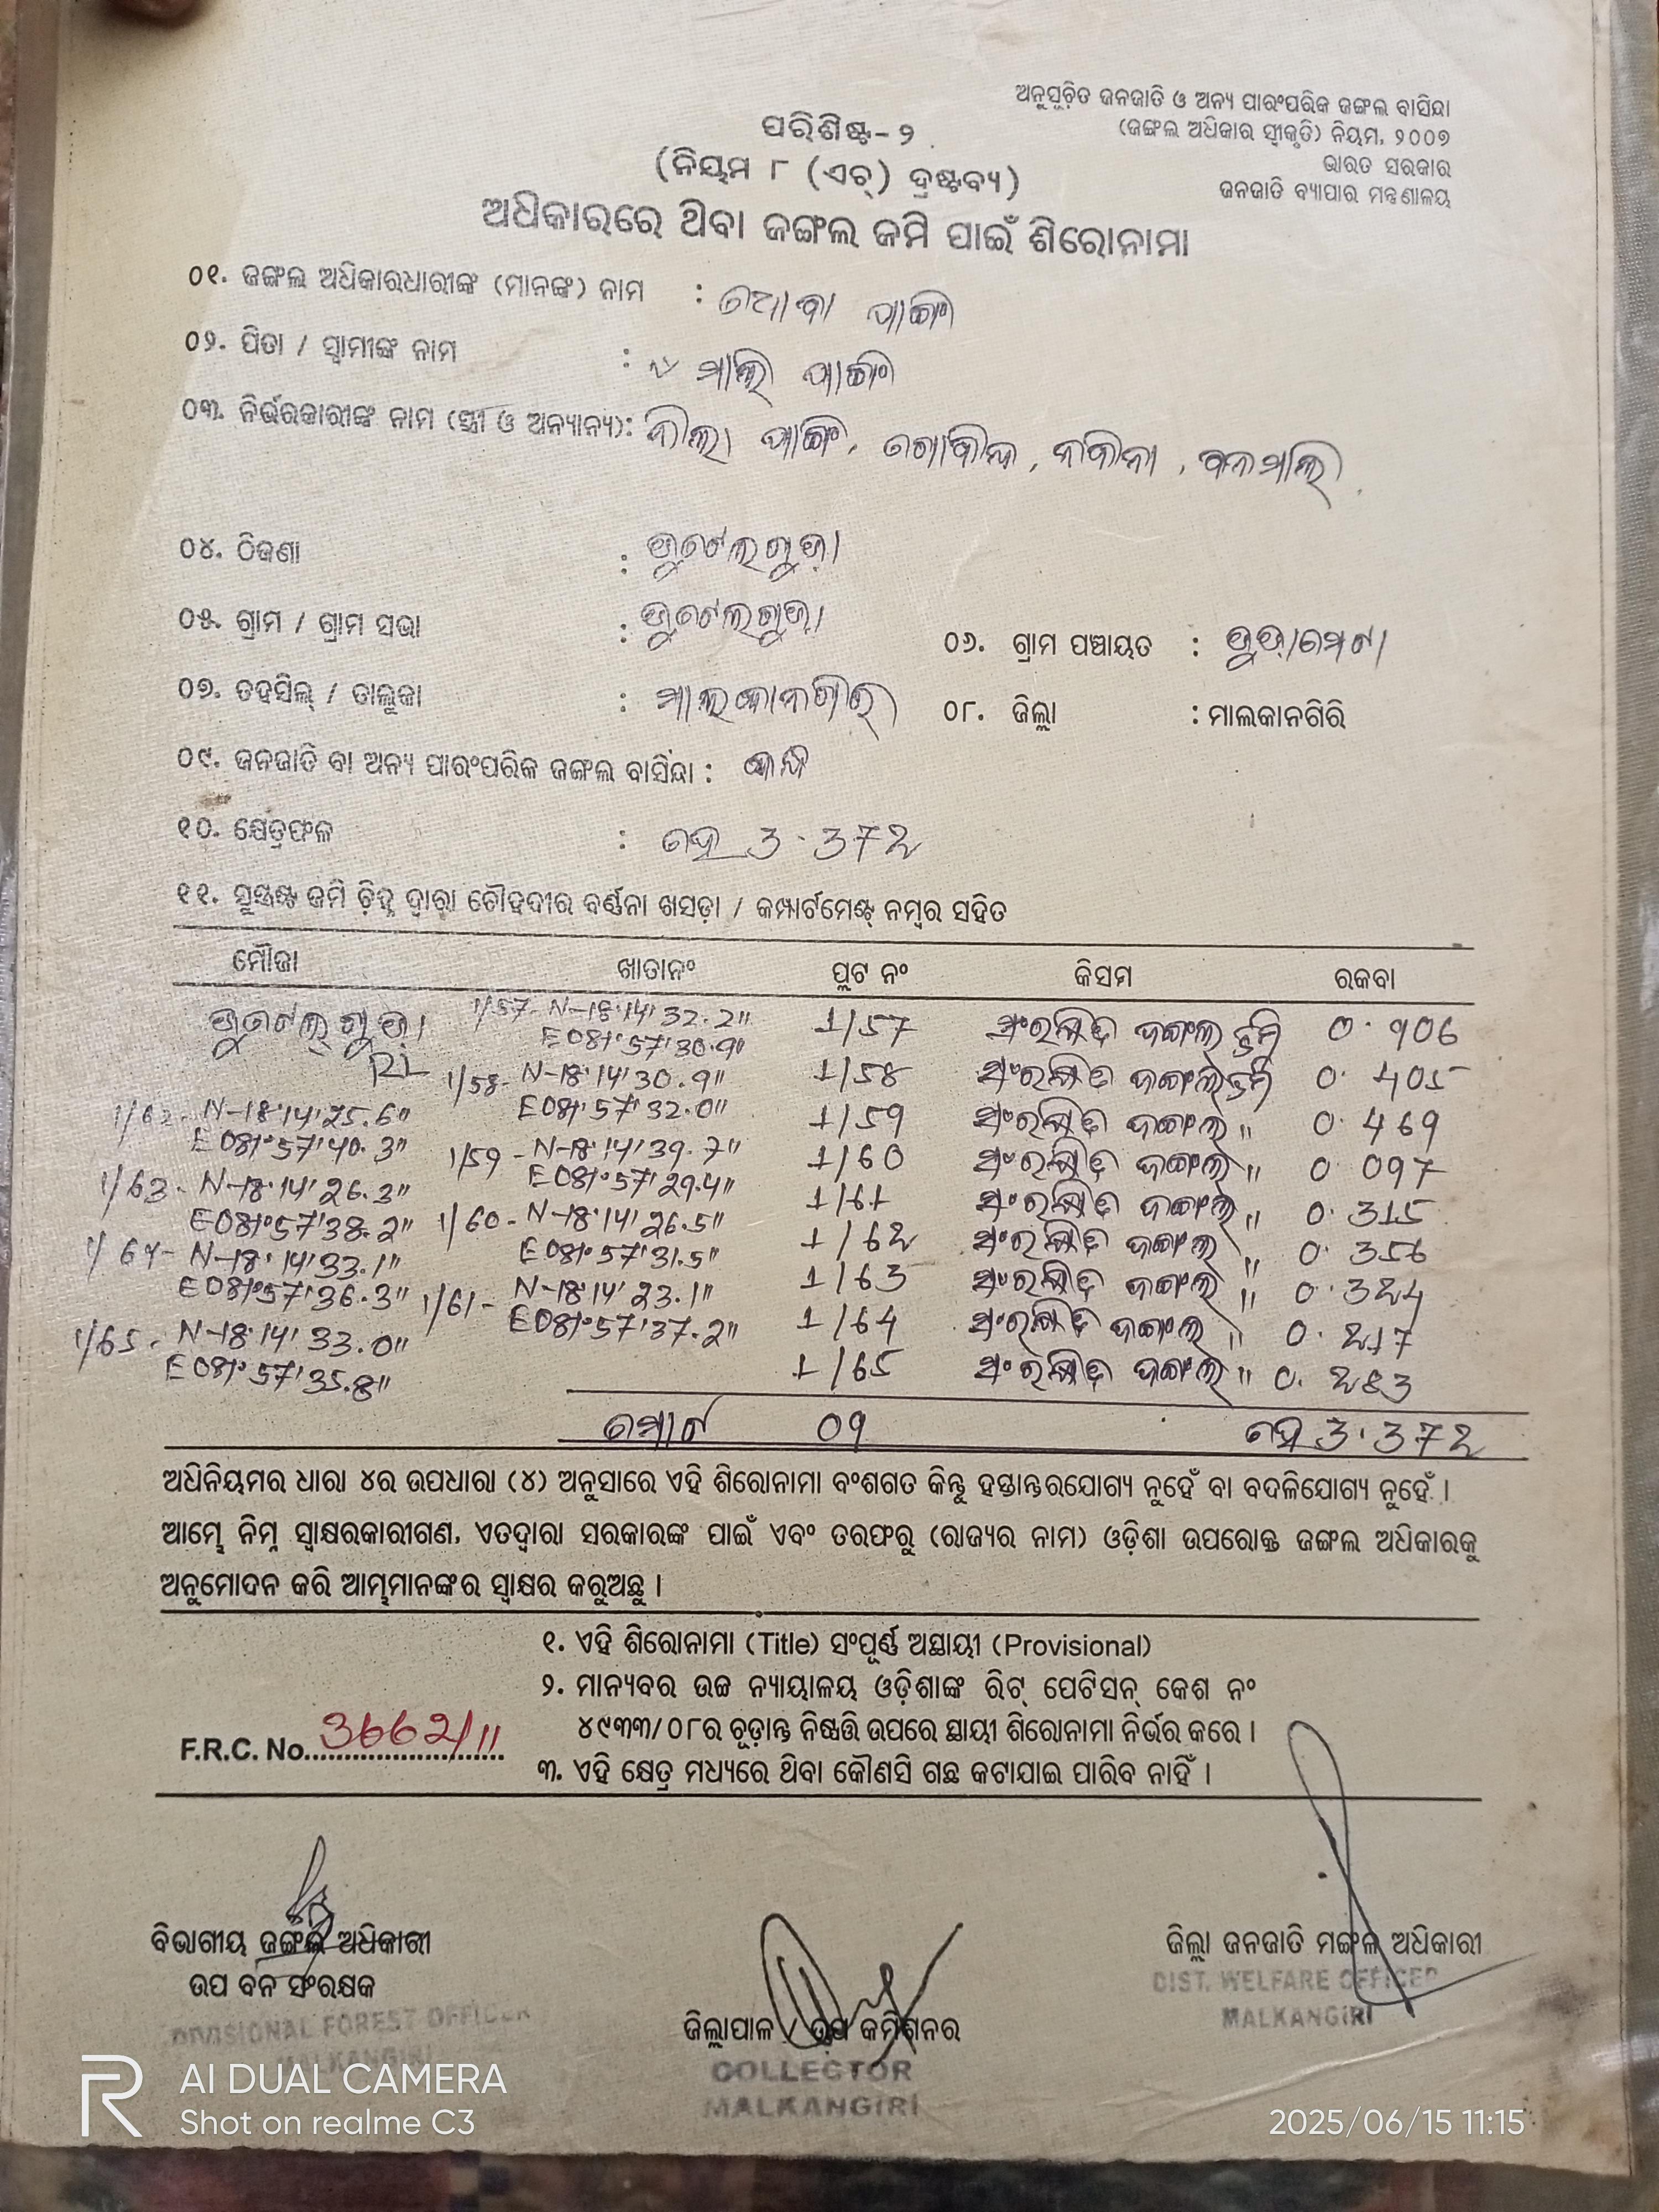 ଅନୁସୂଚିତ ଜନଜାତି ଓ ଅନ୍ୟ ପାରଂପରିକ ଜଙ୍ଗଲ ବାସିନ୍ଦା
(ଜଙ୍ଗଲ ଅଧିକାର ସ୍ୱୀକୃତି) ନିୟମ, ୨୦୦୭
ଭାରତ ସରକାର
ଜନଜାତି ବ୍ୟାପାର ମନ୍ତ୍ରଣାଳୟ
ପରିଶିଷ୍ଟ-୨
(ନିୟମ ୮ (ଏଚ୍) ଦ୍ରଷ୍ଟବ୍ୟ)
ଅଧିକାରରେ ଥିବା ଜଙ୍ଗଲ ଜମି ପାଇଁ ଶିରୋନାମା
୦୧. ଜଙ୍ଗଲ ଅଧିକାରଧାରୀଙ୍କ (ମାନଙ୍କ) ନାମ :
୦୨. ପିତା / ସ୍ୱାମୀଙ୍କ ନାମ : ମାଲି
୦୩. ନିର୍ଭରକାରୀଙ୍କ ନାମ (ସ୍ତ୍ରୀ ଓ ଅନ୍ୟାନ୍ୟ): ଗୋବିନ୍ଦ, ବନମାଲି
୦୪. ଠିକଣା :
୦୫. ଗ୍ରାମ / ଗ୍ରାମ ସଭା :
୦୬. ଗ୍ରାମ ପଞ୍ଚାୟତ :
୦୭. ତହସିଲ୍ / ତାଲୁକା : ମାଲକାନଗିରି
୦୮. ଜିଲ୍ଲା : ମାଲକାନଗିରି
୦୯. ଜନଜାତି ବା ଅନ୍ୟ ପାରଂପରିକ ଜଙ୍ଗଲ ବାସିନ୍ଦା : କନ୍ଧ
୧୦. କ୍ଷେତ୍ରଫଳ : ହେ 3.372
୧୧. ସୁସ୍ପଷ୍ଟ ଜମି ଚିହ୍ନ ଦ୍ୱାରା ଚୌହଦୀର ବର୍ଣ୍ଣନା ଖସଡ଼ା / କମ୍ପାର୍ଟମେଣ୍ଟ୍ ନମ୍ବର ସହିତ
ମୌଜା ଖାତାନଂ ପ୍ଲଟ ନଂ କିସମ ରକବା
1/57- N-18°14'32.2" 1/57 ସଂରକ୍ଷିତ ଜଙ୍ଗଲ ଜମି 0.906
E081°57'30.9"
1/58- N-18°14'30.9" 1/58 ସଂରକ୍ଷିତ ଜଙ୍ଗଲ ଜମି 0.405
1/62- N-18°14'25.6" E081°57'32.0" 1/59 ସଂରକ୍ଷିତ ଜଙ୍ଗଲ " 0.469
E081°57'40.3" 1/59- N-18°14'39.7" 1/60 ସଂରକ୍ଷିତ ଜଙ୍ଗଲ " 0.097
1/63- N-18°14'26.3" E081°57'29.4" 1/61 ସଂରକ୍ଷିତ ଜଙ୍ଗଲ " 0.315
E081°57'38.2" 1/60- N-18°14'26.5" 1/62 ସଂରକ୍ଷିତ ଜଙ୍ଗଲ " 0.356
1/64- N-18°14'33.1" E081°57'31.5" 1/63 ସଂରକ୍ଷିତ ଜଙ୍ଗଲ " 0.324
E081°57'36.3" 1/61- N-18°14'23.1" 1/64 ସଂରକ୍ଷିତ ଜଙ୍ଗଲ " 0.217
1/65- N-18°14'33.0" E081°57'37.2" 1/65 ସଂରକ୍ଷିତ ଜଙ୍ଗଲ " 0.283
E081°57'35.8"
ମୋଟ 09 ହେ 3.372
ଅଧିନିୟମର ଧାରା ୪ର ଉପଧାରା (୪) ଅନୁସାରେ ଏହି ଶିରୋନାମା ବଂଶଗତ କିନ୍ତୁ ହସ୍ତାନ୍ତରଯୋଗ୍ୟ ନୁହେଁ ବା ବଦଳିଯୋଗ୍ୟ ନୁହେଁ ।
ଆମ୍ଭେ ନିମ୍ନ ସ୍ୱାକ୍ଷରକାରୀଗଣ, ଏତଦ୍ୱାରା ସରକାରଙ୍କ ପାଇଁ ଏବଂ ତରଫରୁ (ରାଜ୍ୟର ନାମ) ଓଡ଼ିଶା ଉପରୋକ୍ତ ଜଙ୍ଗଲ ଅଧିକାରକୁ
ଅନୁମୋଦନ କରି ଆମ୍ଭମାନଙ୍କର ସ୍ୱାକ୍ଷର କରୁଅଛୁ ।
୧. ଏହି ଶିରୋନାମା (Title) ସଂପୂର୍ଣ୍ଣ ଅସ୍ଥାୟୀ (Provisional)
୨. ମାନ୍ୟବର ଉଚ୍ଚ ନ୍ୟାୟାଳୟ ଓଡ଼ିଶାଙ୍କ ରିଟ୍ ପେଟିସନ୍ କେଶ ନଂ
୪୯୩୩/୦୮ର ଚୂଡ଼ାନ୍ତ ନିଷ୍ପତ୍ତି ଉପରେ ସ୍ଥାୟୀ ଶିରୋନାମା ନିର୍ଭର କରେ ।
F.R.C. No. 3662/11
୩. ଏହି କ୍ଷେତ୍ର ମଧ୍ୟରେ ଥିବା କୌଣସି ଗଛ କଟାଯାଇ ପାରିବ ନାହିଁ ।
ବିଭାଗୀୟ ଜଙ୍ଗଲ ଅଧିକାରୀ
ଉପ ବନ ସଂରକ୍ଷକ
DIVISIONAL FOREST OFFICER
MALKANGIRI
ଜିଲ୍ଲାପାଳ / ଉପ କମିଶନର
COLLECTOR
MALKANGIRI
ଜିଲ୍ଲା ଜନଜାତି ମଙ୍ଗଳ ଅଧିକାରୀ
DIST. WELFARE OFFICER
MALKANGIRI
AI DUAL CAMERA
Shot on realme C3
2025/06/15 11:15